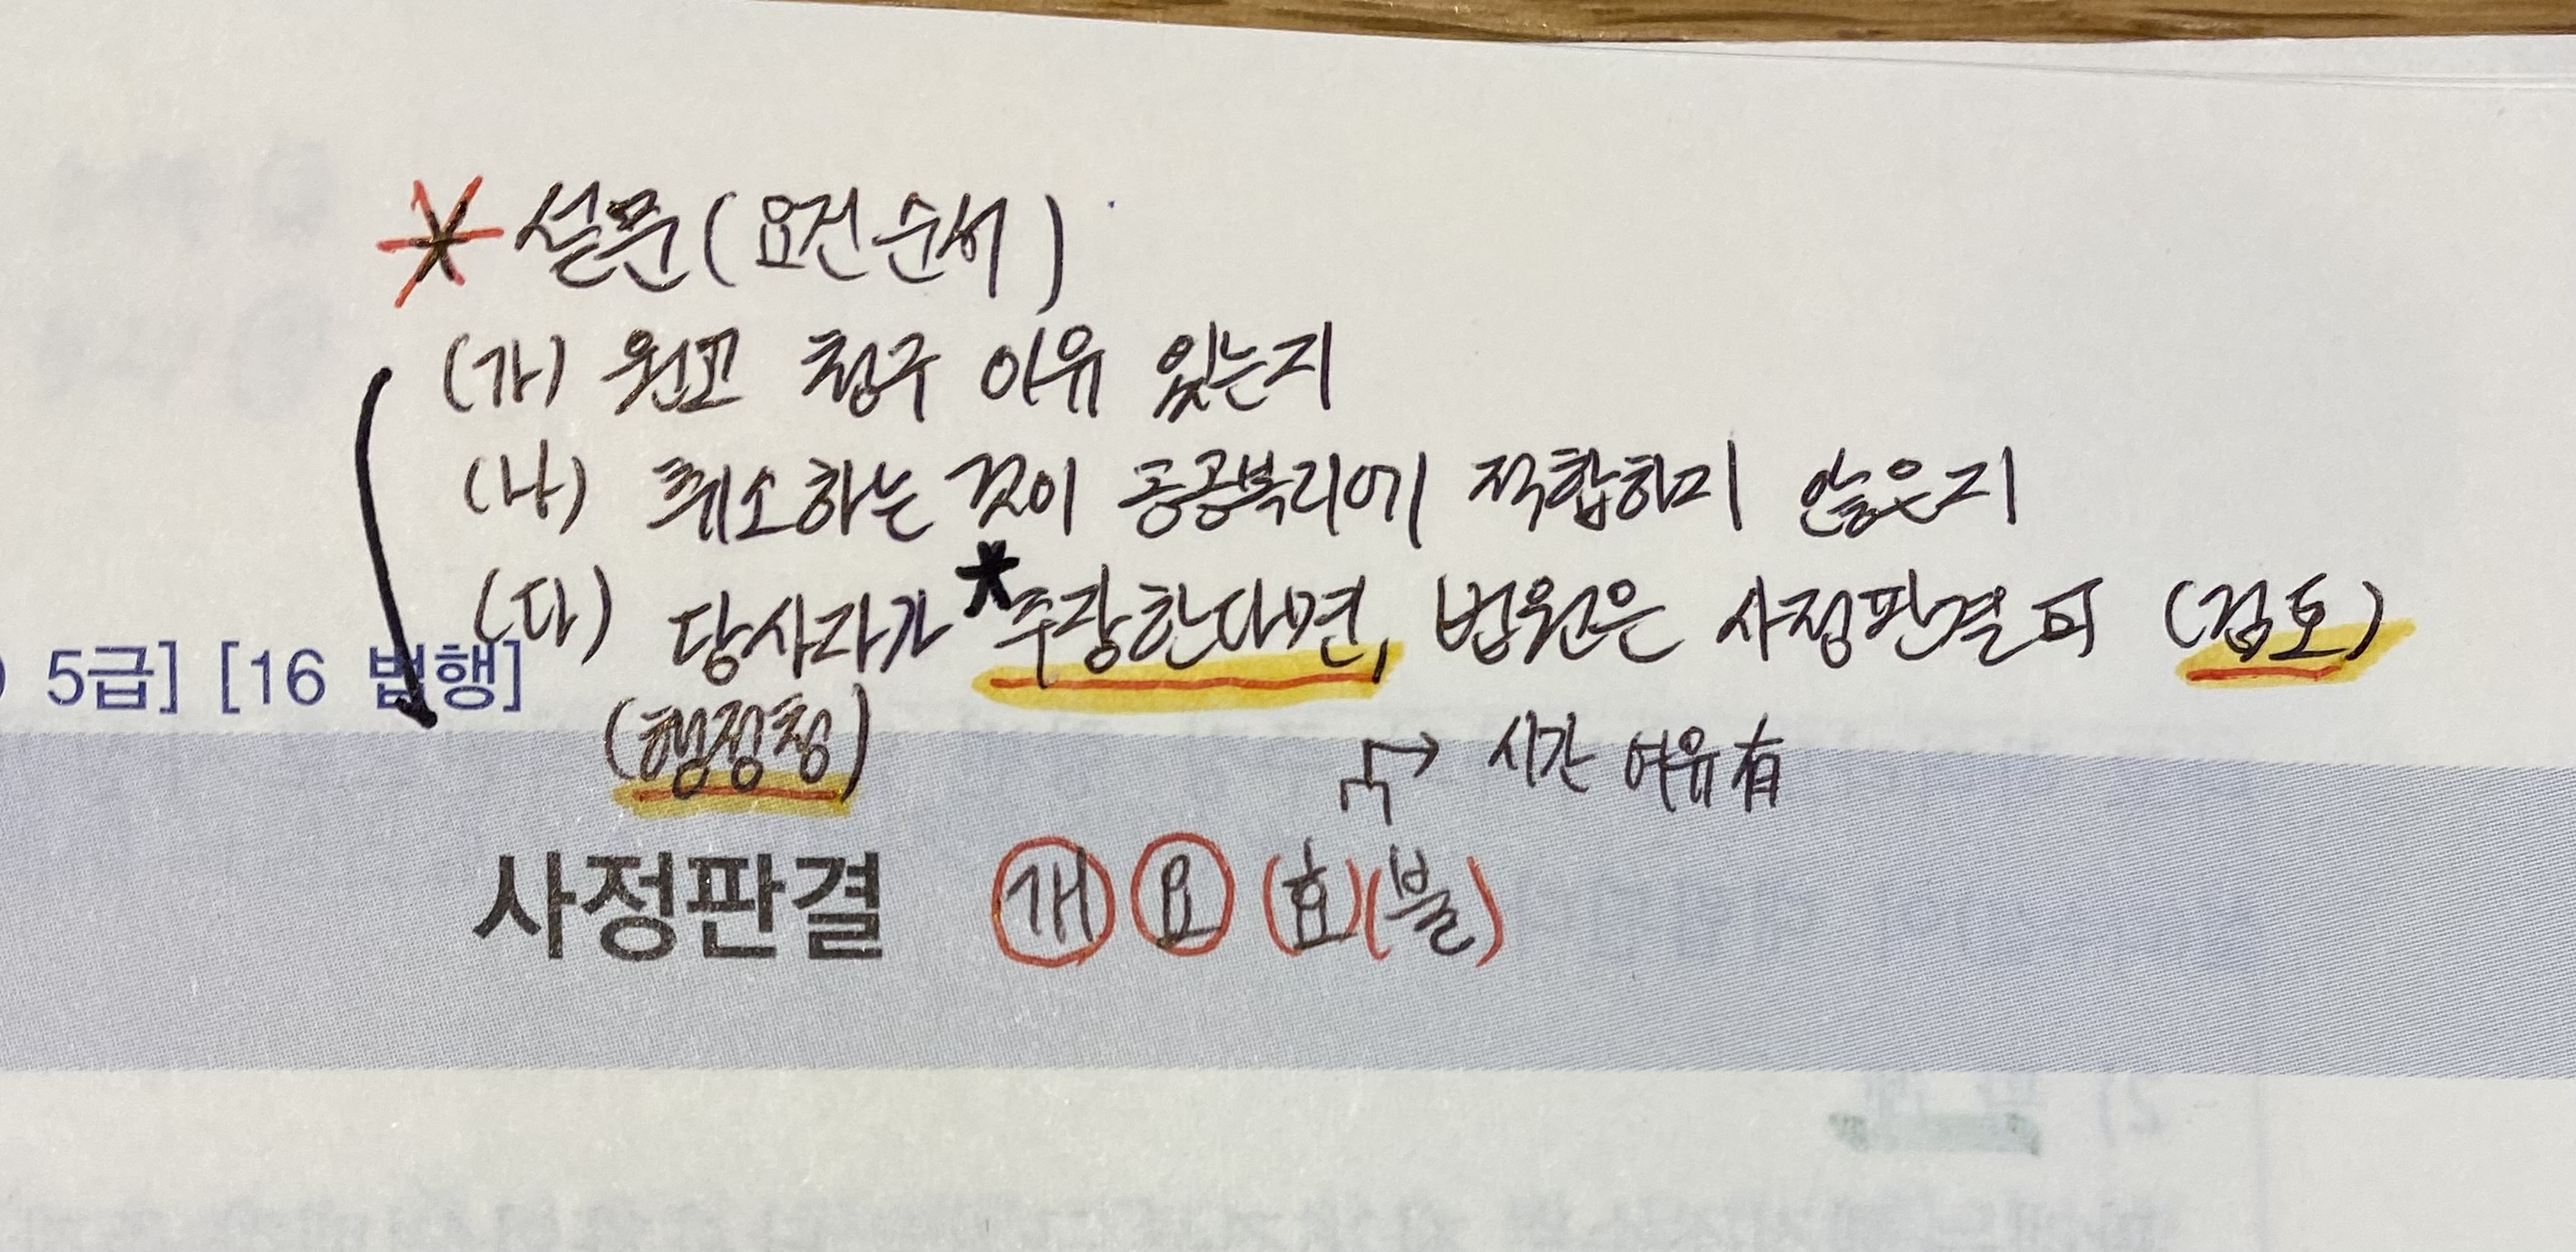 * 설문(요건 순서)
(가) 원고 청구 이유 있는지
(나) 취소하는 것이 공공복리에 적합하지 않은지
(다) 당사자가 *주장한다면, 법원은 사정판결 可 (검토)
5급] [16 법행]
(행정청)
→ 시간 여유 有
사정판결 개 요 (효)(불)